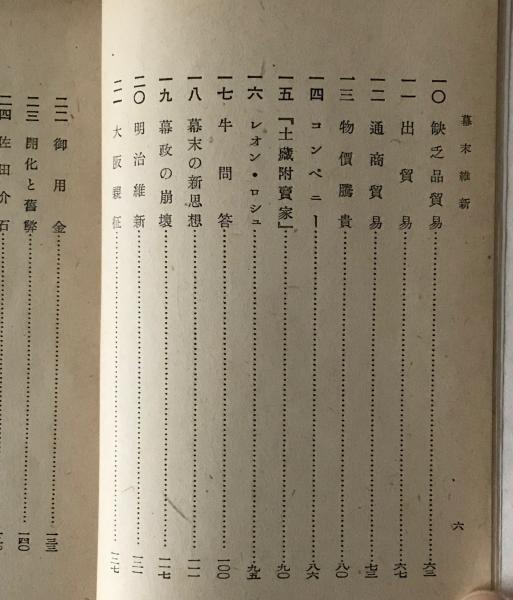 幕末維新
一〇 缺乏品貿易 六三
一一 出貿易 六七
一二 通商貿易 七三
一三 物價騰貴 八〇
一四 コンペニー 八六
一五 『土藏附賣家』 九〇
一六 レオン・ロシュ 九五
一七 牛問答 一〇〇
一八 幕末の新思想 一一一
一九 幕政の崩壞 一一七
二〇 明治維新 一二一
二一 大阪親征 一二七
六
二二 御用金 一三三
二三 開化と舊弊 一四〇
二四 佐田介石